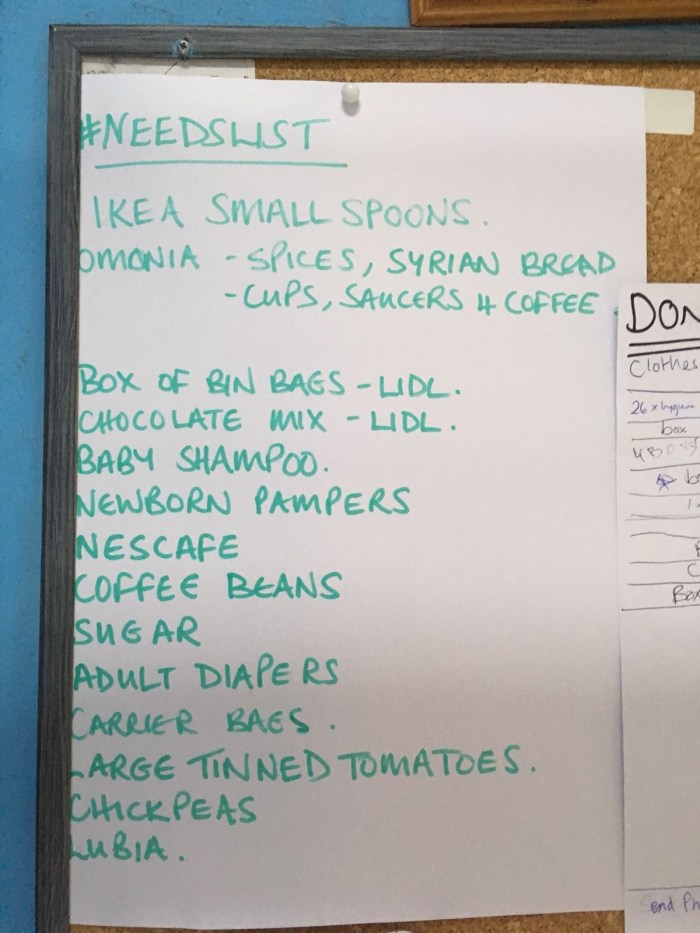 #NEEDSLIST
IKEA SMALL SPOONS.
OMONIA - SPICES, SYRIAN BREAD
- CUPS, SAUCERS & COFFEE
BOX OF BIN BAGS - LIDL.
CHOCOLATE MIX - LIDL.
BABY SHAMPOO.
NEWBORN PAMPERS
NESCAFE
COFFEE BEANS
SUGAR
ADULT DIAPERS
CARRIER BAGS.
LARGE TINNED TOMATOES.
CHICKPEAS
LUBIA.
DON
Clothes
26 x
box
Box